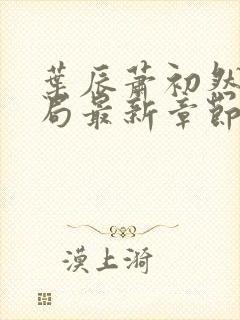 葉辰蕭初然
局最新章節
漠上漪